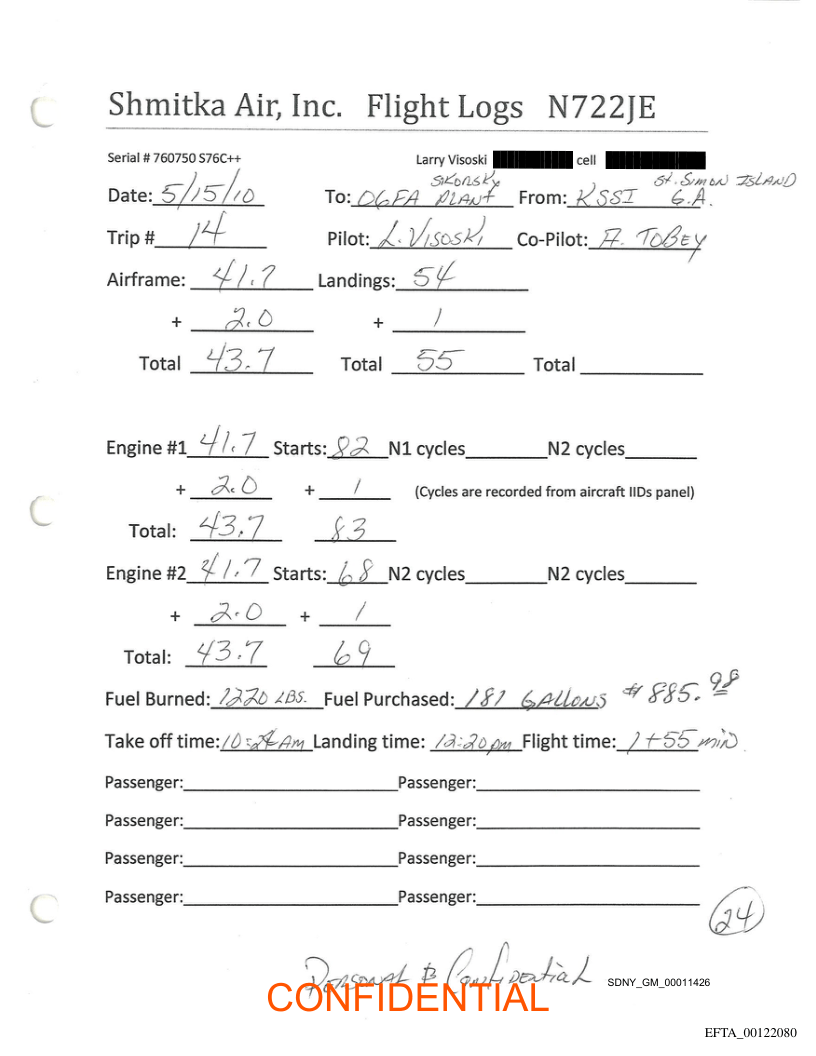 Shmitka Air, Inc. Flight Logs N722JE
Serial # 760750 S76C++ Larry Visoski cell
SIKORSKY St. Simon ISLAND
Date: 5/15/10 To: 06FA PLANT From: KSSI G.A.
Trip # 14 Pilot: L. VISOSKI Co-Pilot: A. TOBEY
Airframe: 41.7 Landings: 54
+ 2.0 + 1
Total 43.7 Total 55 Total
Engine #1 41.7 Starts: 82 N1 cycles N2 cycles
+ 2.0 + 1 (Cycles are recorded from aircraft IIDs panel)
Total: 43.7 83
Engine #2 41.7 Starts: 68 N2 cycles N2 cycles
+ 2.0 + 1
Total: 43.7 69
Fuel Burned: 1220 LBS. Fuel Purchased: 181 GALLONS $885.98
Take off time: Landing time: 12:20pm Flight time: 1+55 min
Passenger: Passenger:
Passenger: Passenger:
Passenger: Passenger:
Passenger: Passenger:
24
PERSONAL & Confidential
CONFIDENTIAL
SDNY_GM_00011426
EFTA_00122080